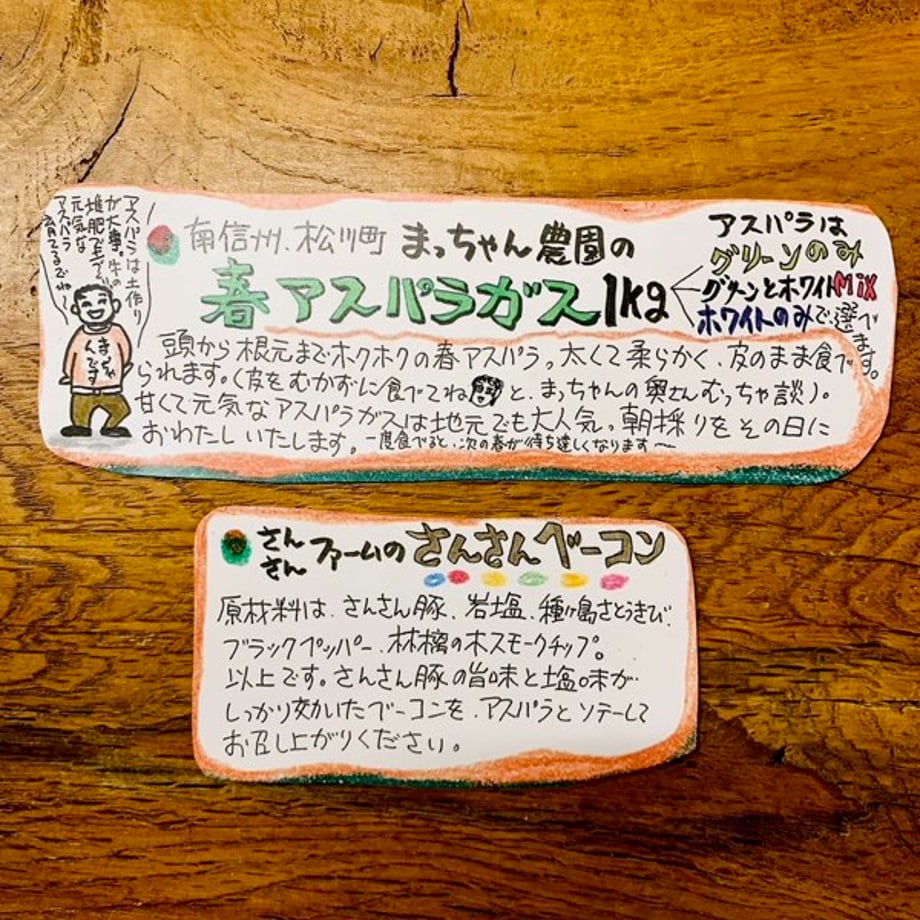 アスパラは土作り
が大事。牛の
堆肥で土づくり
元気な
アスパラ
育ててるでね〜
まっちゃ
んです
南信州、松川町 まっちゃん農園の
春アスパラガス1kg
アスパラは
グリーンのみ
グリーンとホワイトMiX
ホワイトのみで選べ
ます。
頭から根元までホクホクの春アスパラ。太くて柔らかく、皮のまま食べ
られます。(皮をむかずに食べてね と、まっちゃんの奥さんむっちゃ談)。
甘くて元気なアスパラガスは地元でも大人気。朝採りをその日に
おわたしいたします。一度食べると、次の春が待ち遠しくなります〜
さん
さん ファームの さんさんベーコン
原材料は、さんさん豚、岩塩、種ヶ島さとうきび、
ブラックペッパー、林檎の木スモークチップ。
以上です。さんさん豚の旨味と塩味が
しっかり効いたベーコンを、アスパラとソテーして
お召し上がりください。